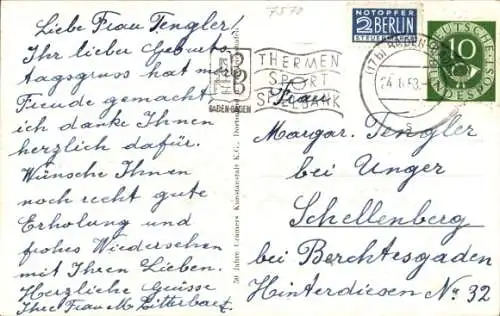 7570
Liebe Frau Tengler!
Ihr lieber Geburts-
tagsgruss hat mir
Freude gemacht
ich danke Ihnen
herzlich dafür.
Wünsche Ihnen
noch recht gute
Erholung und
frohes Wiedersehen
mit Ihren Lieben.
Herzliche Grüsse
Ihre Frau M.
BADEN-BADEN
THERMEN
SPORT
SPIELBANK
NOTOPFER
2 BERLIN
STEUERMARKE
DEUTSCHE
10
BUNDESPOST
(17b) BADEN-
24.6.53
a
50 Jahre Kunstanstalt K.G.,
Frau
Margar. Tengler
bei Unger
Schellenberg
bei Berchtesgaden
Hinterdiesen No. 32